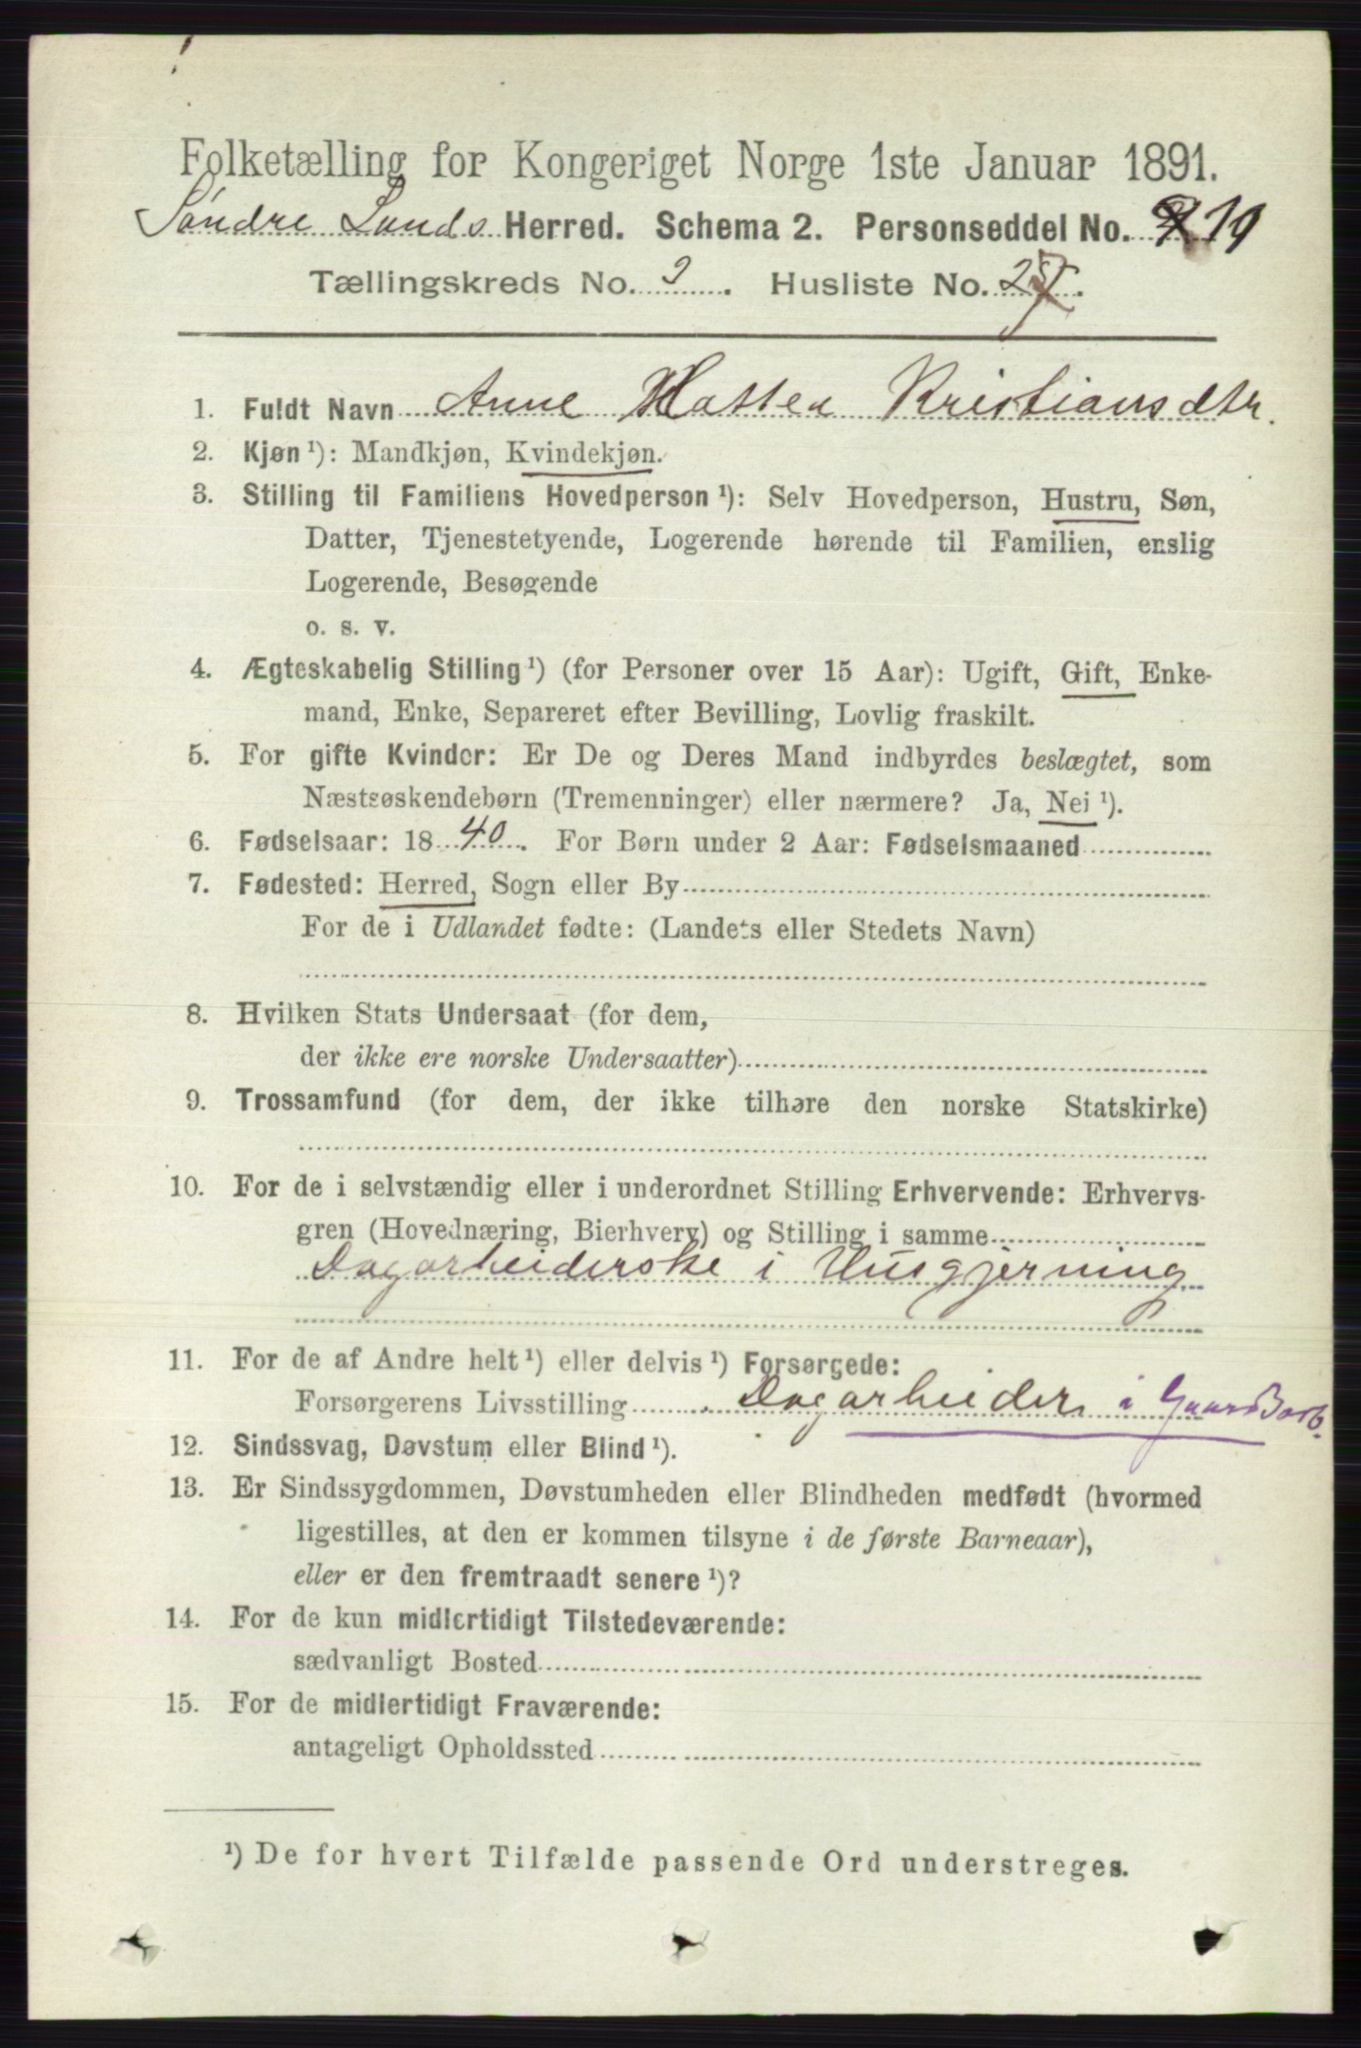 Folketælling for Kongeriget Norge 1ste Januar 1891.
Søndre Lands Herred. Schema 2. Personseddel No. 10
Tællingskreds No. 2. Husliste No. 25.
1. Fuldt Navn Anne Kristiansdtr.
2. Kjøn ¹): Mandkjøn, Kvindekjøn.
3. Stilling til Familiens Hovedperson ¹): Selv Hovedperson, Hustru, Søn,
Datter, Tjenestetyende, Logerende hørende til Familien, enslig
Logerende, Besøgende
o. s. v.
4. Ægteskabelig Stilling ¹) (for Personer over 15 Aar): Ugift, Gift, Enke-
mand, Enke, Separeret efter Bevilling, Lovlig fraskilt.
5. For gifte Kvinder: Er De og Deres Mand indbyrdes beslægtet, som
Næstsøskendebørn (Tremenninger) eller nærmere? Ja, Nei ¹).
6. Fødselsaar: 1840. For Børn under 2 Aar: Fødselsmaaned
7. Fødested: Herred, Sogn eller By
For de i Udlandet fødte: (Landets eller Stedets Navn)
8. Hvilken Stats Undersaat (for dem,
der ikke ere norske Undersaatter)
9. Trossamfund (for dem, der ikke tilhøre den norske Statskirke)
10. For de i selvstændig eller i underordnet Stilling Erhvervende: Erhvervs-
gren (Hovednæring, Bierhverv) og Stilling i samme
Dagarbeiderske i Husgjerning
11. For de af Andre helt ¹) eller delvis ¹) Forsørgede:
Forsørgerens Livsstilling Dagarbeider i
12. Sindssvag, Døvstum eller Blind ¹).
13. Er Sindssygdommen, Døvstumheden eller Blindheden medfødt (hvormed
ligestilles, at den er kommen tilsyne i de første Barneaar),
eller er den fremtraadt senere ¹)?
14. For de kun midlertidigt Tilstedeværende:
sædvanligt Bosted
15. For de midlertidigt Fraværende:
antageligt Opholdssted
¹) De for hvert Tilfælde passende Ord understreges.